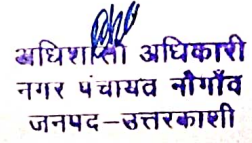 अधिशासी अधिकारी
नगर पंचायत नौगाँव
जनपद-उत्तरकाशी